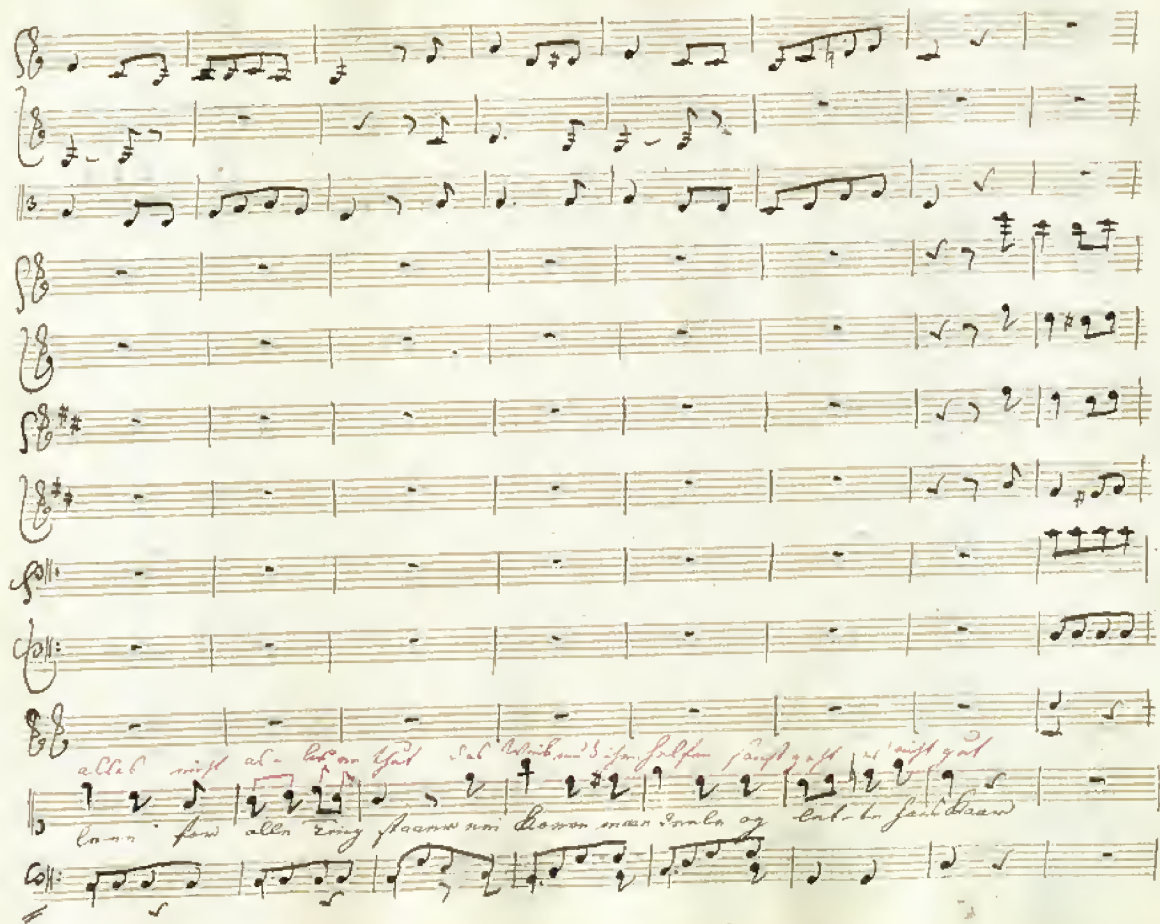 alles nicht al- lein thut das Weib muß ihm helfen sonst geht es nicht gut
for alle Ting staaer nei Konen maae deele og let-te hans Kaar